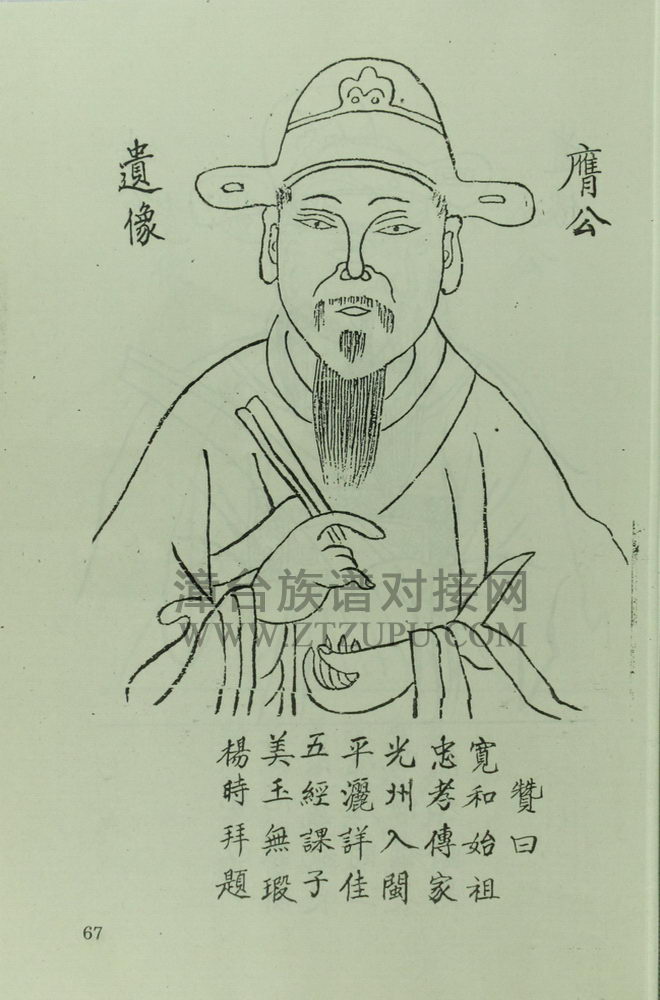 膺公
遺像
漳台族谱对接网
WWW.ZTZUPU.COM
贊曰
寬和始祖
忠孝傳家
光州入閩
平灑詳佳
五經課子
美玉無瑕
楊時拜題
67